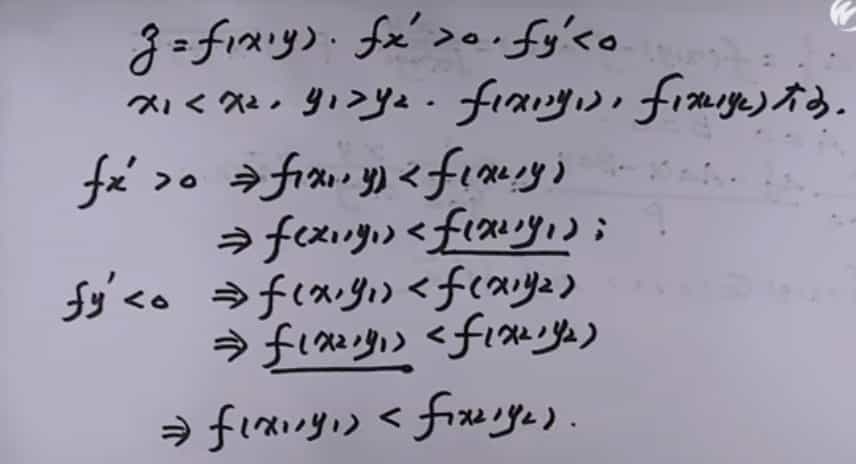 z = f(x,y). fx′ > 0. fy′ < 0
x1 < x2, y1 > y2. f(x1,y1), f(x2,y2) 大小.
fx′ > 0 ⇒ f(x1,y) < f(x2,y)
⇒ f(x1,y1) < f(x2,y1);
fy′ < 0 ⇒ f(x,y1) < f(x,y2)
⇒ f(x2,y1) < f(x2,y2)
⇒ f(x1,y1) < f(x2,y2).